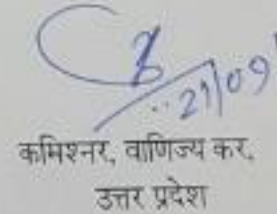 21/09
कमिश्नर, वाणिज्य कर,
उत्तर प्रदेश